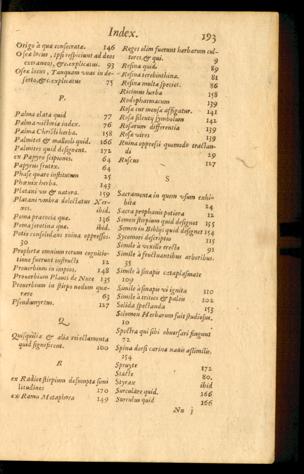 Index. 193
Origo à qua consecratæ. 146
Osea locus, ipsi respiciunt ad deos
extraneos, &c. explicatus. 93
Osea locus, Tanquam vuas in de-
serto, &c. explicatus 75
P.
Palma elata quid 77
Palma victoria index. 76
Palma Christi herba. 158
Palmites & malleoli quid. 166
Palmites quid designent. 172
ex Papyro scirpiones. 64
Papyrus frutex. 64
Phase quare institutum 25
Phœnix herba. 143
Platani vis & natura. 159
Platani umbra delectatus Xer-
xes. ibid.
Poma præcocia quæ. 136
Poma serotina quæ. ibid.
Potis confessiales nimia oppressos.
30
Propheta omnium rerum cognitio-
tione fuerunt instructi 12
Prouerbium in impios, 148
Prouerbium Plauti de Nuce 135
Prouerbium in stirpe nodum quæ-
rere 63
Pseudonyrtus. 127
Q
Quisquiliæ & alia reiectamenta
quid significent. 100
R
ex Radice stirpium desumpta simi
litudines 170
ex Ramo Metaphora 149
Reges olim fuerunt herbarum cul-
tores, & qui. 9
Resina quid. 89
Resina terebinthina. 81
Resina multæ species. 86
Ricinum herba 158
Rodopharmacum 139
Rosa cur mensa affigatur. 141
Rosa silentij symbolum 142
Rosarum differentia 139
Rosæ vires 139
Ruina oppressi quomodo tractan-
di 29
Ruscus 127
S
Sacramenta in quem usum exhi-
bita 24
Sacra prophanis potiora 12
Semen stirpium quid designet 155
Semen in Biblijs quid designet 154
Sycomori descriptio 115
Simile à vensile erecta 91
Simile à fructuantibus arboribus.
35
Simile à sinapis cataplasmate
109
Simile à sinapis vi ignita 110
Simile à tritico & paleis 102
Solida spectanda 153
Solomon Herbarum fuit studiosus.
10
Spectra qui sibi obuersari fingunt
72
Spina dorsi carina nauis assimilis.
154
Spruyte 172
Stacte 80.
Styrax ibid
Surculare quid. 166
Surculus quid 166
Nn j